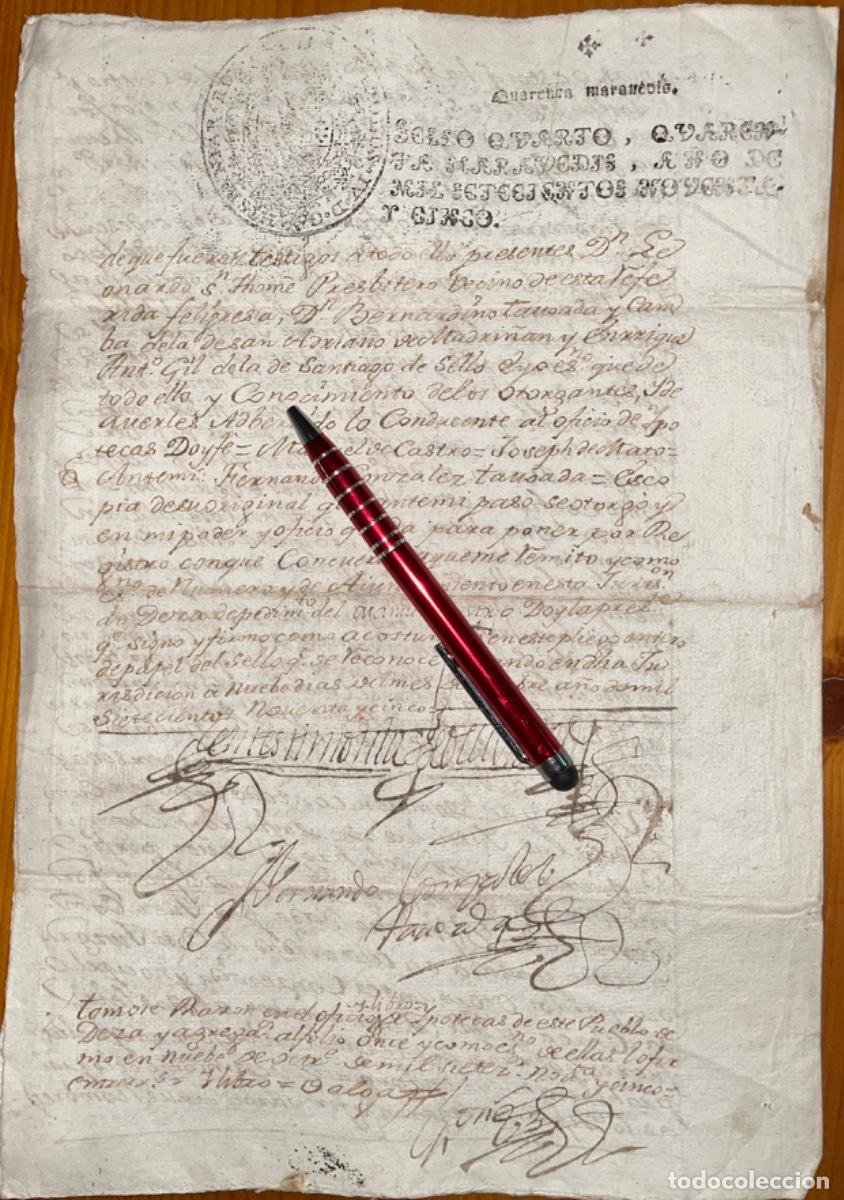 Quarenta maravedis.
SELLO QVARTO, QVAREN-
TA MARAVEDIS, AÑO DE
MIL SETECIENTOS NOVENTA
Y CINCO.
de que fueron testigos a todo ello presentes Dn. Le
onardo Sn. Thome Presbitero Vecino de esta refe
rida feligresia, Dn. Bernardino Taboada y Cam
ba dela de San Adriano de Madriñan y Enrrique
Anto. Gil dela de Santiago de Sello Eyo esno. que de
todo ello y Conocimiento delos otorgantes, y de
averles Adber do lo Conducente al oficio de Ypo
tecas Doy fe = Ma el de Castro = Joseph de Mato =
Antemi: Fernan Gonzalez Taboada = Es co
pia de su original q antemi pasò se otorgó y
en mi poder y oficio q da para poner por Re
gistro conque Concuer aque me remito y como
esno. de Numero y de Aiun miento en esta Jurison.
de Deza de pedimto. del Doy la preste.
qe. signo y firmo como acostum en este pliego entero
de papel del sello qe. se reconoce ando en dha Ju
risdicion a nuebe dias del mes bre año de mil
Sietecientos Noventa y cinco
en testimonio
Fernando Gonzalez
Taboada
tomose Razon en el oficio y libro de Ypotecas de este Pueblo de
Deza y agrega. al folio once y como esno. de ellas lo fir
mo en nuebe de mil sietezs. nobta. y cinco =
libro =
todocoleccion